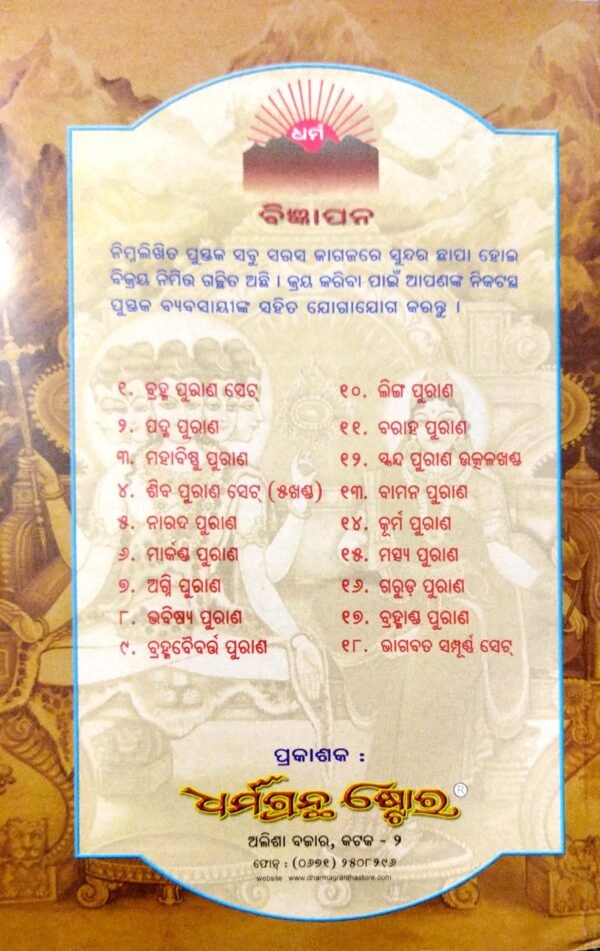 ଧର୍ମ
ବିଜ୍ଞାପନ
ନିମ୍ନଲିଖିତ ପୁସ୍ତକ ସବୁ ସରସ କାଗଜରେ ସୁନ୍ଦର ଛାପା ହୋଇ
ବିକ୍ରୟ ନିମିତ୍ତ ଗଚ୍ଛିତ ଅଛି । କ୍ରୟ କରିବା ପାଇଁ ଆପଣଙ୍କ ନିକଟସ୍ଥ
ପୁସ୍ତକ ବ୍ୟବସାୟୀଙ୍କ ସହିତ ଯୋଗାଯୋଗ କରନ୍ତୁ ।
୧. ବ୍ରହ୍ମ ପୁରାଣ ସେଟ୍
୨. ପଦ୍ମ ପୁରାଣ
୩. ମହାବିଷ୍ଣୁ ପୁରାଣ
୪. ଶିବ ପୁରାଣ ସେଟ୍ (୫ଖଣ୍ଡ)
୫. ନାରଦ ପୁରାଣ
୬. ମାର୍କଣ୍ଡ ପୁରାଣ
୭. ଅଗ୍ନି ପୁରାଣ
୮. ଭବିଷ୍ୟ ପୁରାଣ
୯. ବ୍ରହ୍ମବୈବର୍ତ୍ତ ପୁରାଣ
୧୦. ଲିଙ୍ଗ ପୁରାଣ
୧୧. ବରାହ ପୁରାଣ
୧୨. ସ୍କନ୍ଦ ପୁରାଣ ଉତ୍କଳଖଣ୍ଡ
୧୩. ବାମନ ପୁରାଣ
୧୪. କୂର୍ମ ପୁରାଣ
୧୫. ମତ୍ସ୍ୟ ପୁରାଣ
୧୬. ଗରୁଡ଼ ପୁରାଣ
୧୭. ବ୍ରହ୍ମାଣ୍ଡ ପୁରାଣ
୧୮. ଭାଗବତ ସମ୍ପୂର୍ଣ୍ଣ ସେଟ୍
ପ୍ରକାଶକ :
ଧର୍ମଗ୍ରନ୍ଥ ଷ୍ଟୋର ®
ଅଲିଶା ବଜାର, କଟକ - ୨
ଫୋନ୍ : (୦୬୭୧) ୨୫୦୮୨୯୬
website : www.dharmagranthastore.com